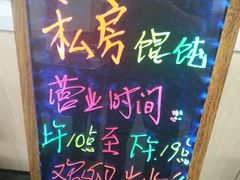 私房馄饨
营业时间
上午10点至下午19点